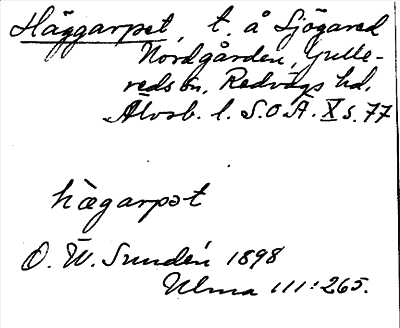 Häggarpet, t. å Sjögared
Nordgården, Gulle-
reds sn, Redvägs hd,
Älvsb. l. S.O.Ä. X s. 77
hægarpət
O. W. Sundén 1898
Ulma 111:265.